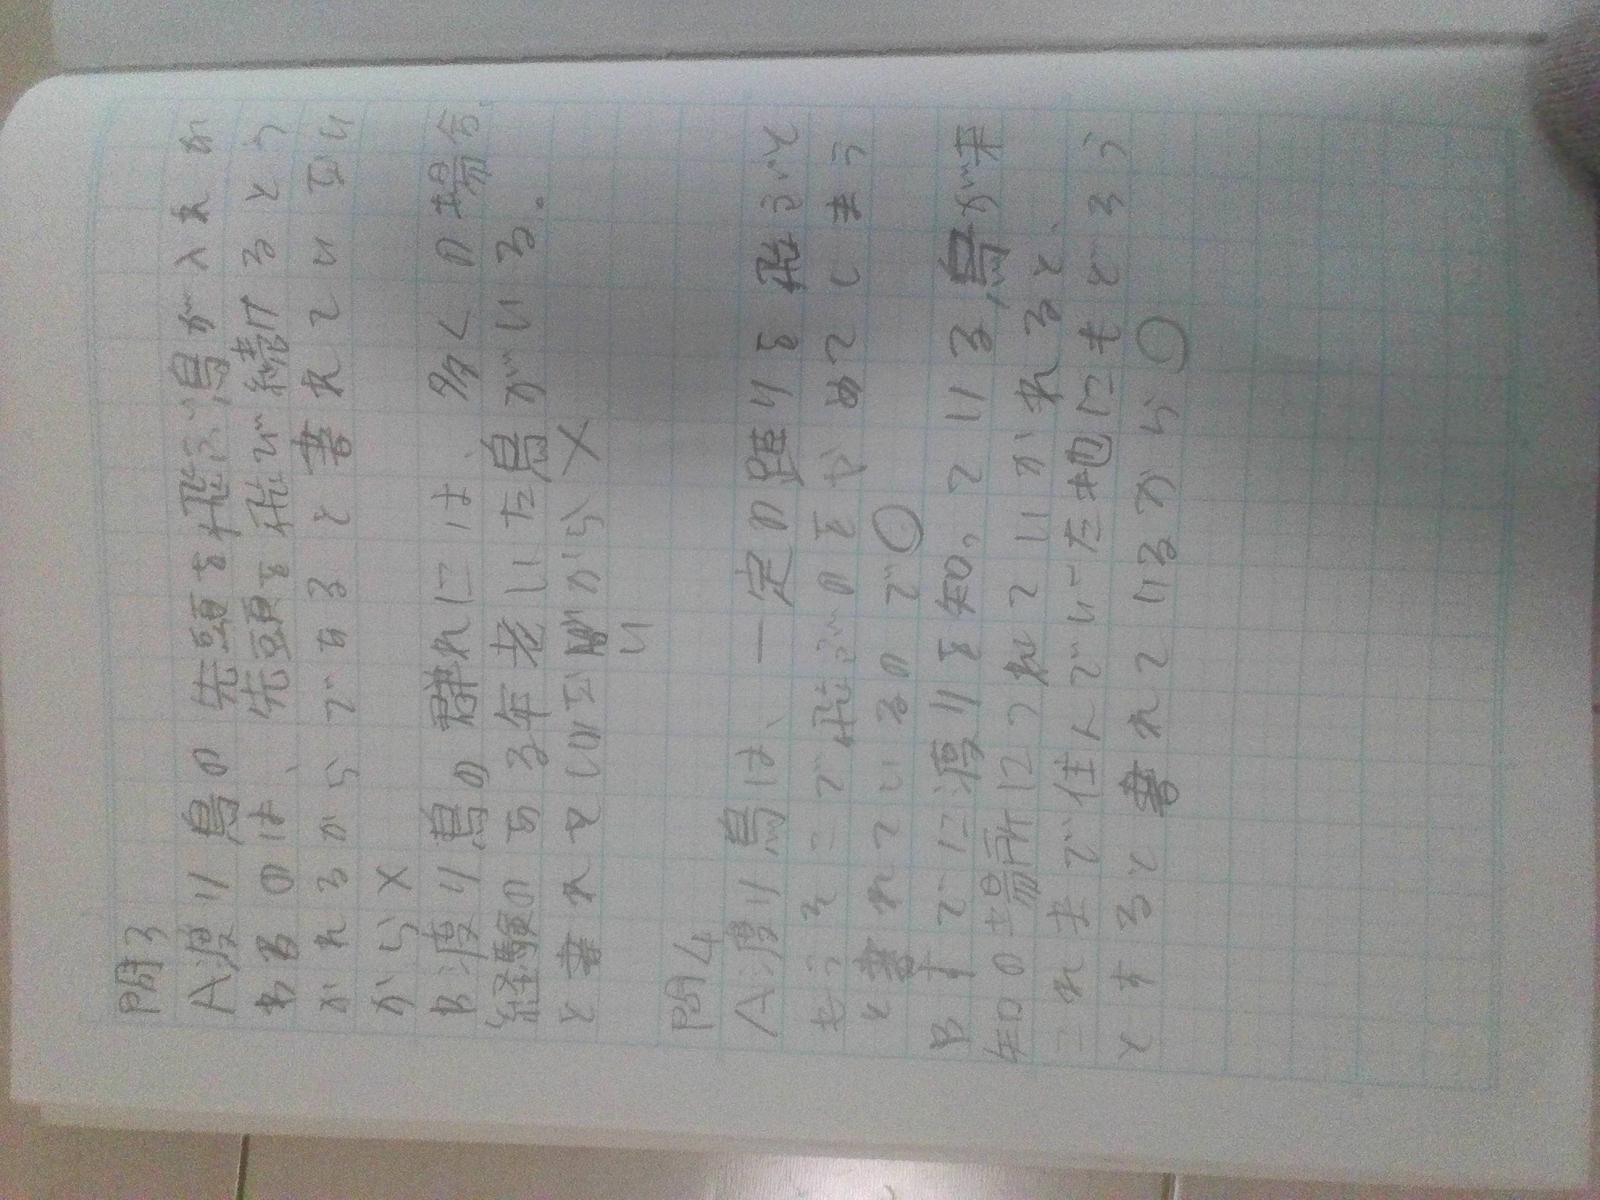 問3
A渡り鳥の先頭を飛ぶ鳥が入れか
わるのは、先頭を飛び続けるとつ
かれるからであると書れていない
から×
B渡り鳥の群れには、多くの場合、
経験のある年老いた鳥がいる。
と書れていないから×
問4
A渡り鳥は、一定の距りを飛ぶと
もうそこで飛ぶのをやめてしまう
と書れているので○
Bすでに渡りを知っている鳥が来
知の場所につれていかれると、
これまで住んでいた地にもどろう
とすると書れているから○